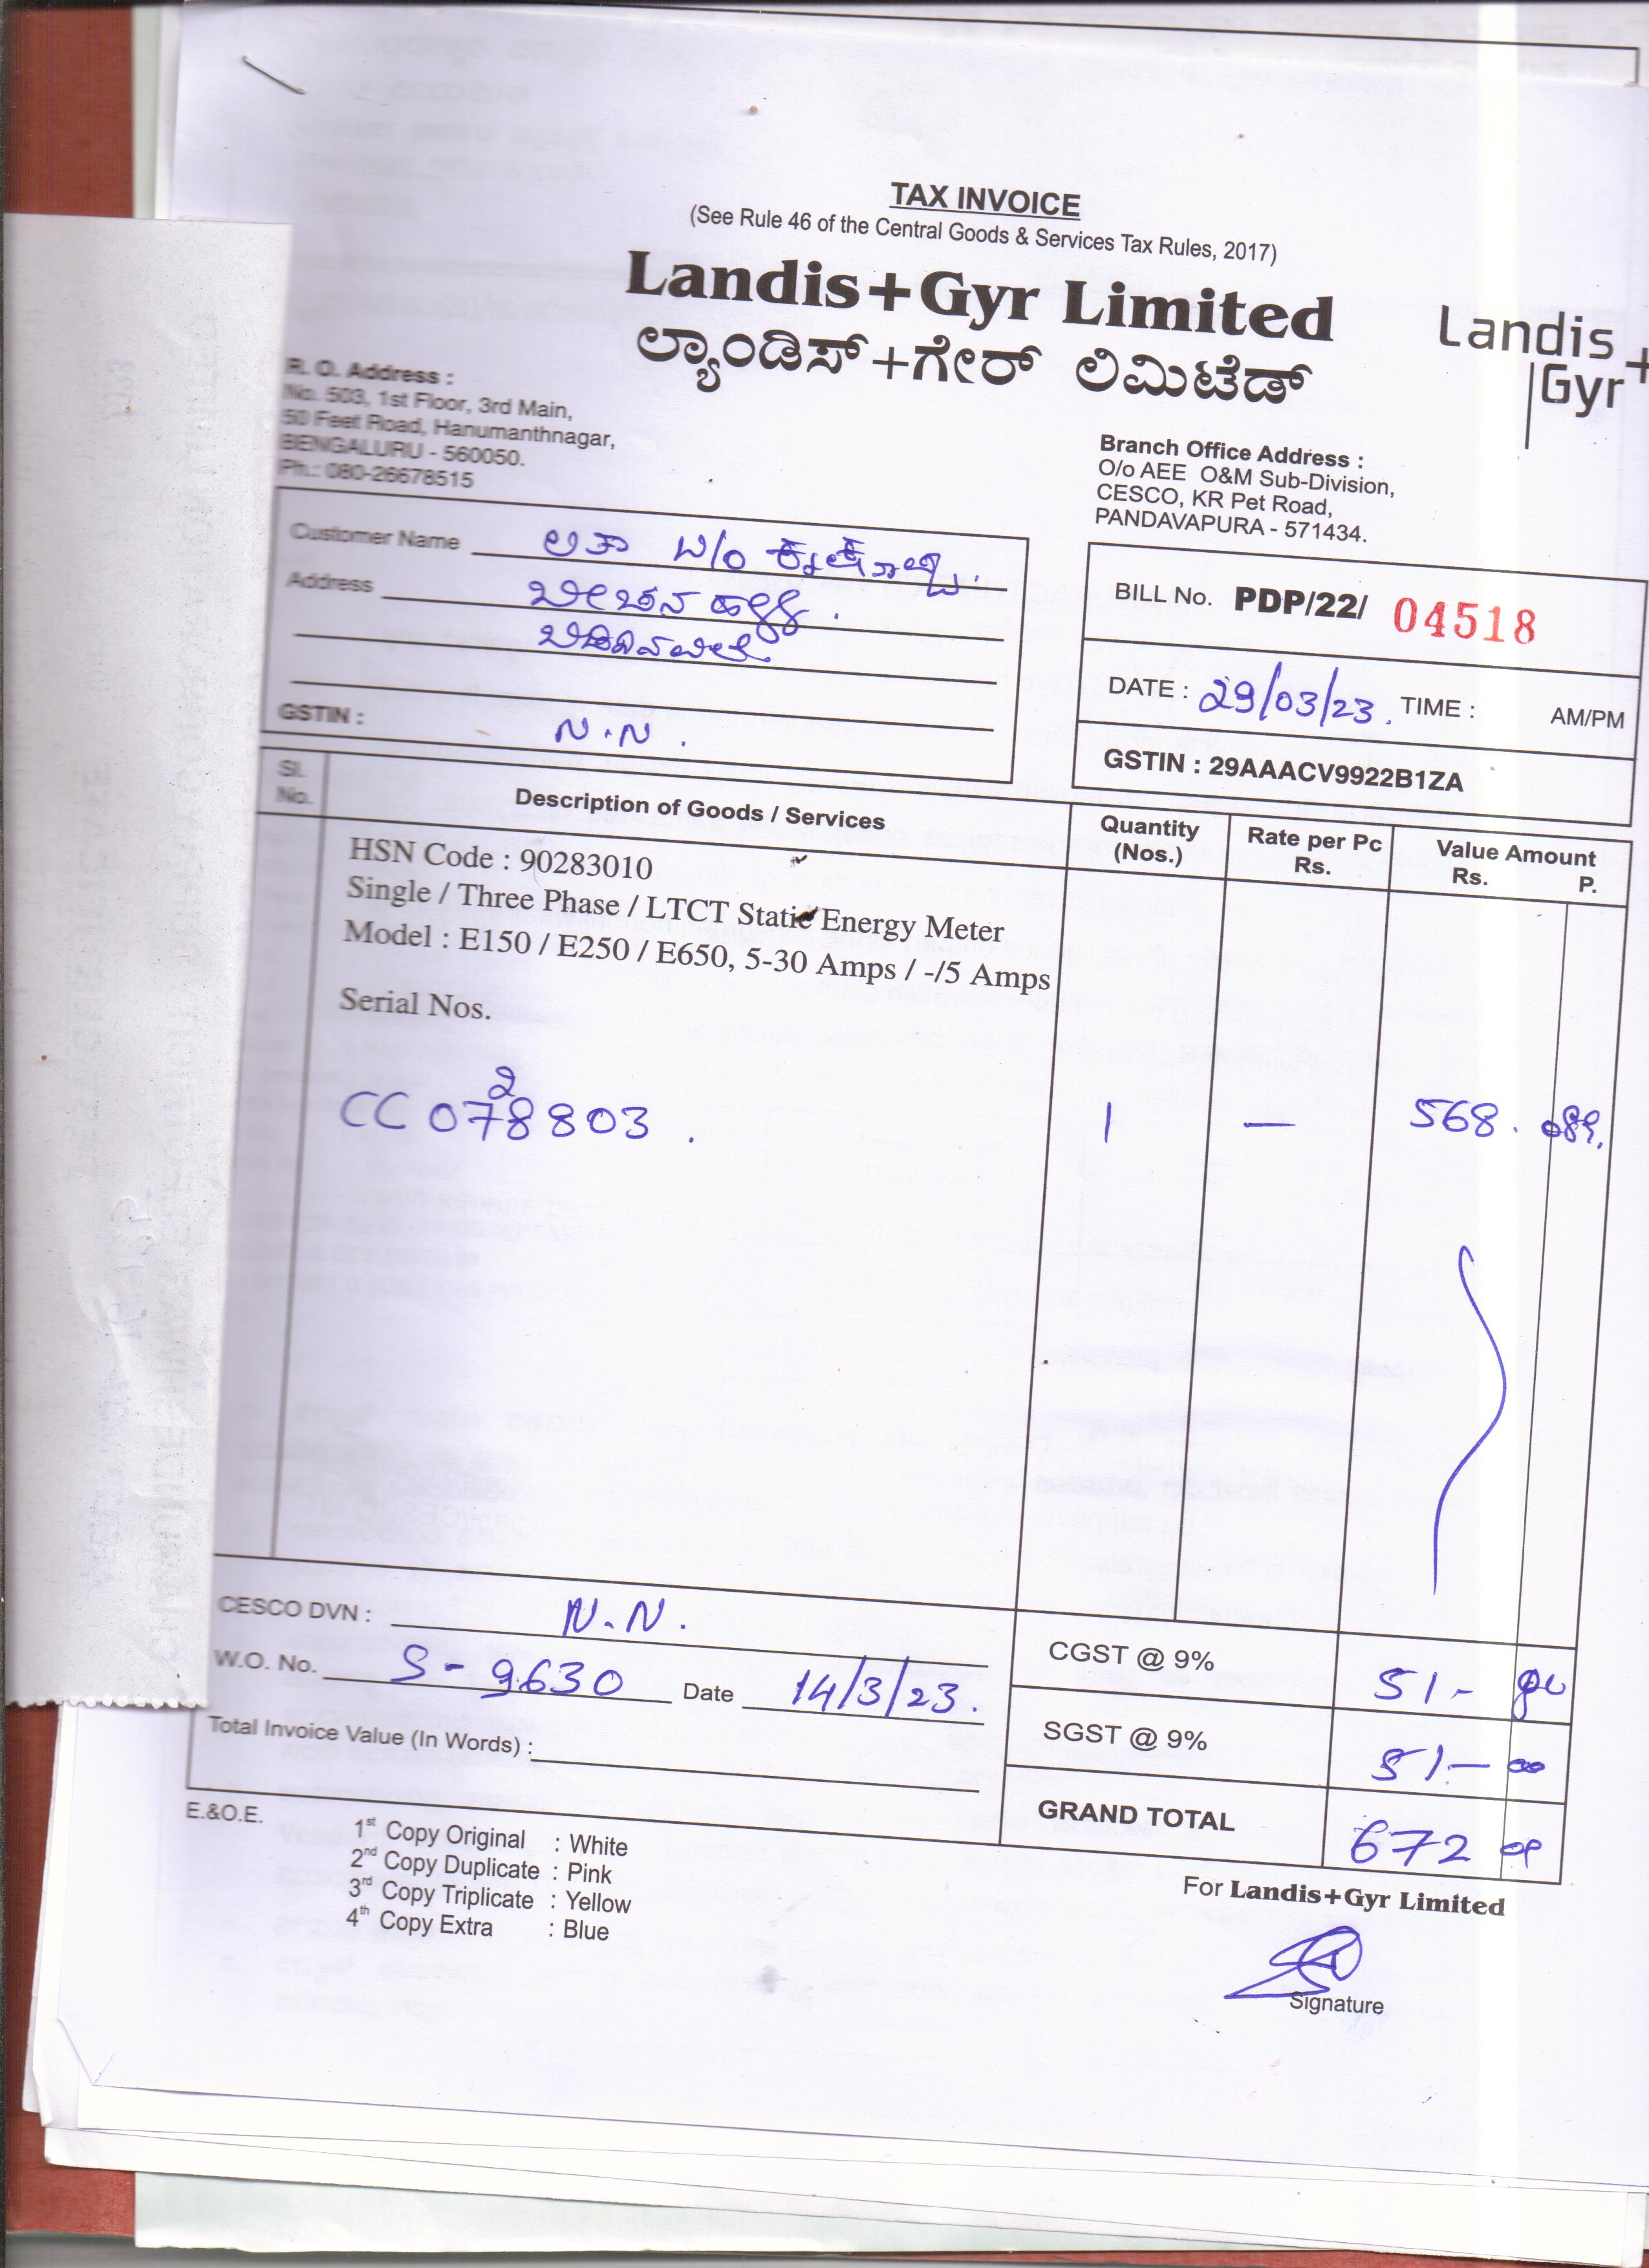 TAX INVOICE
(See Rule 46 of the Central Goods & Services Tax Rules, 2017)
Landis+Gyr Limited
ಲ್ಯಾಂಡಿಸ್+ಗೇರ್ ಲಿಮಿಟೆಡ್
Landis
Gyr+
R. O. Address :
No. 503, 1st Floor, 3rd Main,
50 Feet Road, Hanumanthnagar,
BENGALURU - 560050.
Ph.: 080-26678515
Branch Office Address :
O/o AEE O&M Sub-Division,
CESCO, KR Pet Road,
PANDAVAPURA - 571434.
Customer Name ಲತಾ W/o
Address ಬೀಚನಹಳ್ಳಿ .
GSTIN : N.N.
BILL No. PDP/22/ 04518
DATE : 29/03/23. TIME : AM/PM
GSTIN : 29AAACV9922B1ZA
Sl. No. Description of Goods / Services Quantity (Nos.) Rate per Pc Rs. Value Amount Rs. P.
HSN Code : 90283010
Single / Three Phase / LTCT Static Energy Meter
Model : E150 / E250 / E650, 5-30 Amps / -/5 Amps
Serial Nos.
2
CC 078803 . 1 — 568.
CESCO DVN : N.N.
W.O. No. S-9630 Date 14/3/23.
Total Invoice Value (In Words) :
CGST @ 9% 51-
SGST @ 9% 51— 00
GRAND TOTAL 672
E.&O.E.
1st Copy Original : White
2nd Copy Duplicate : Pink
3rd Copy Triplicate : Yellow
4th Copy Extra : Blue
For Landis+Gyr Limited
Signature